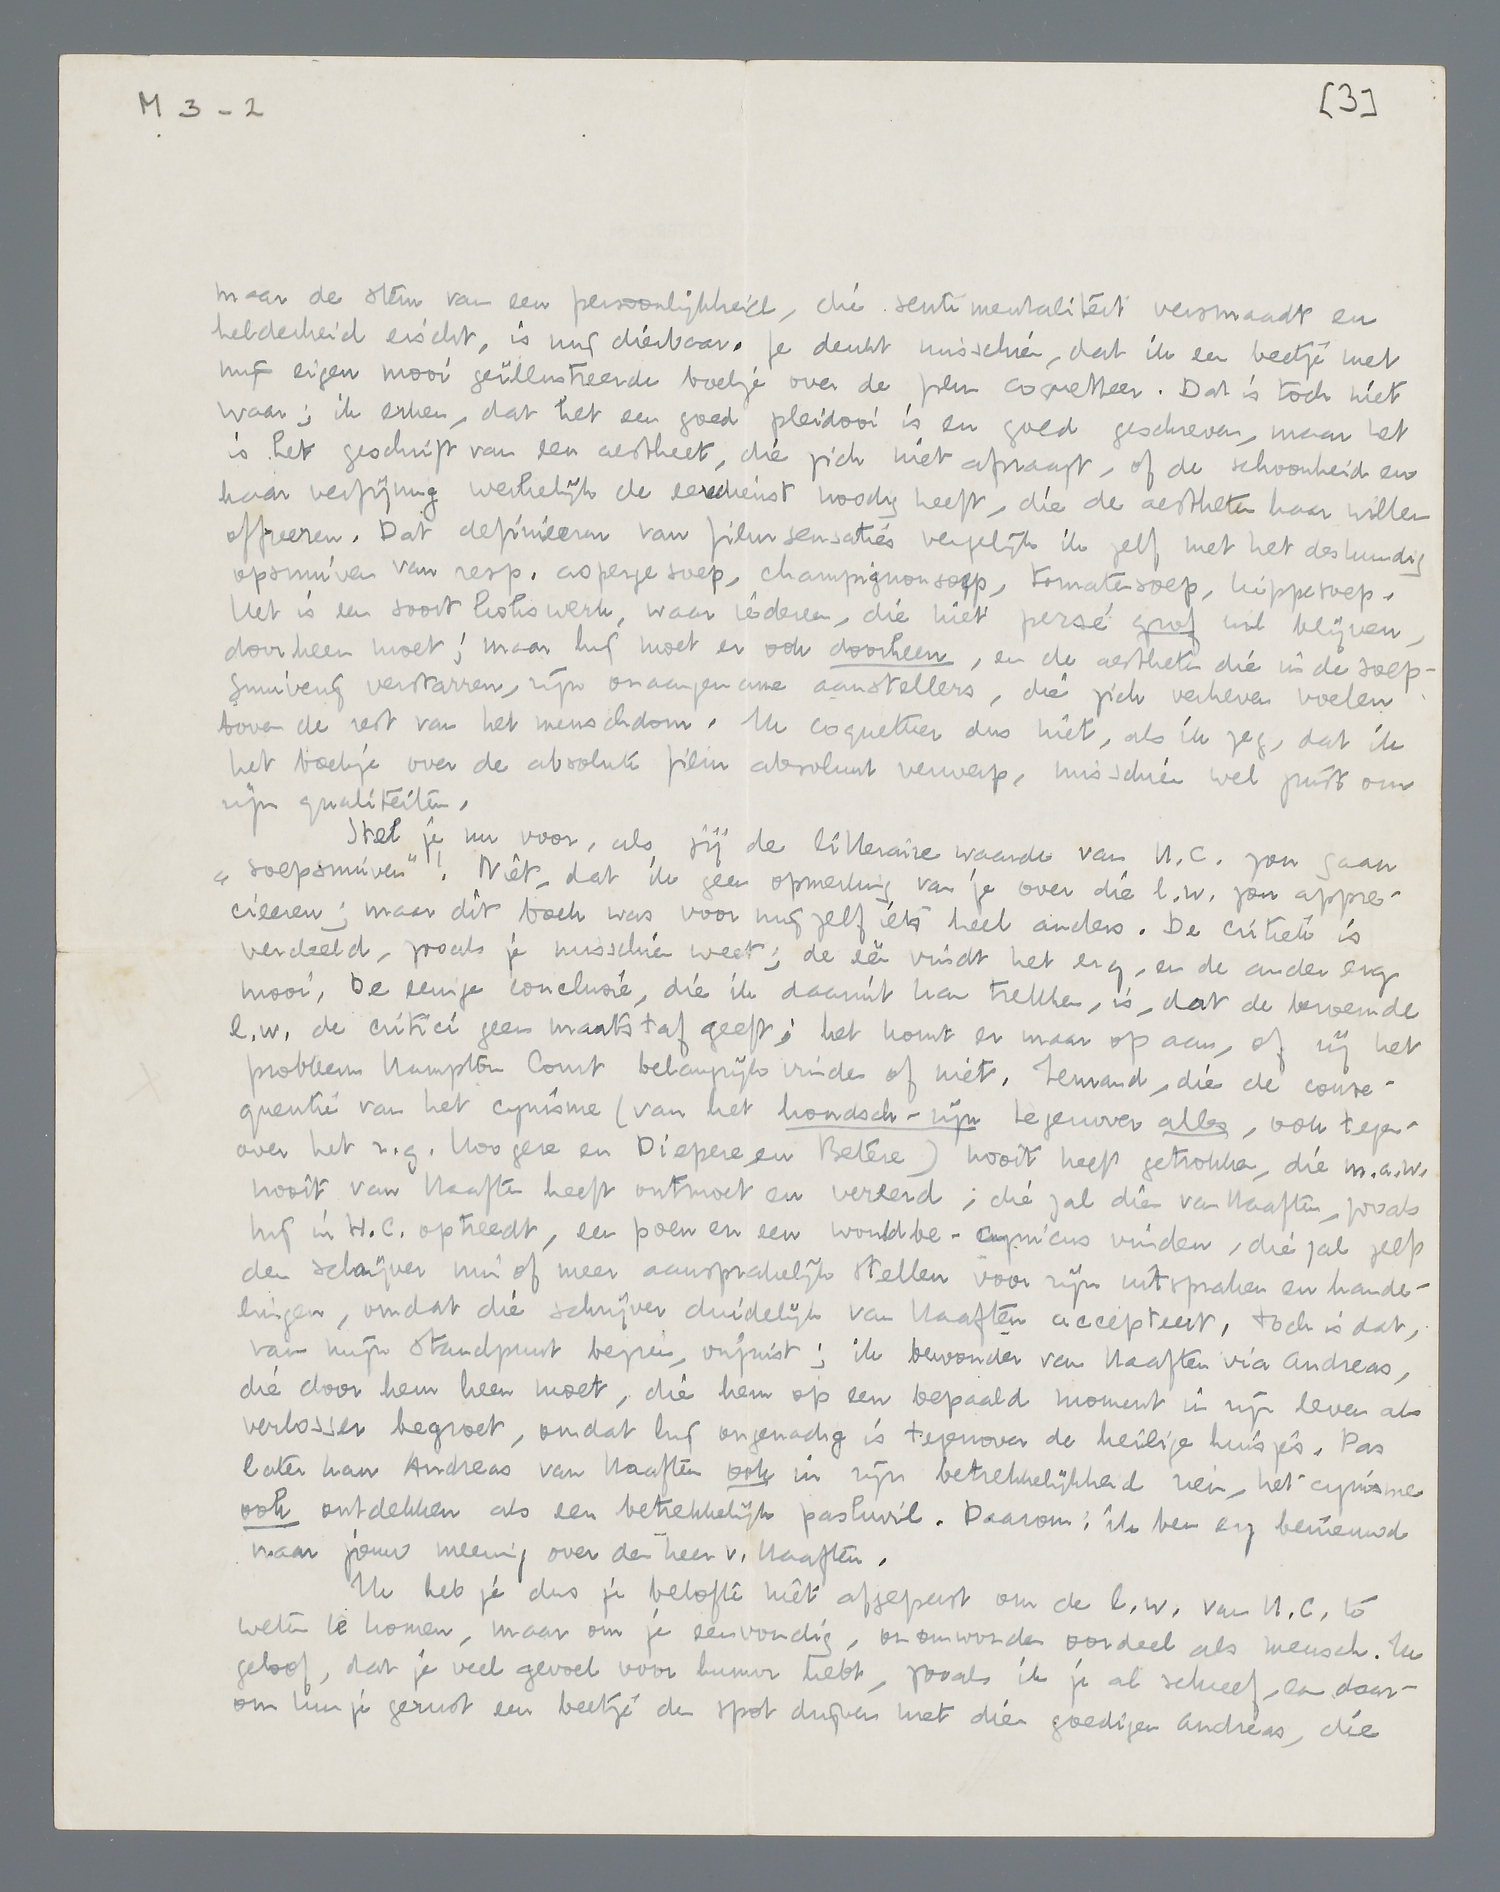 M 3-2
[3]
maar de stem van een persoonlijkheid, die sentimentaliteit versmaadt en
helderheid eischt, is mij dierbaar. Je denkt misschien, dat ik een beetje met
mijn eigen mooi geïllustreerde boekje over de film coquetteer. Dat is toch niet
waar; ik erken, dat het een goed pleidooi is en goed geschreven, maar het
is het geschrift van een aestheet, die zich niet afvraagt, of de schoonheid en
haar verfijning werkelijk de eeredienst noodig heeft, die de aestheten haar willen
offreeren. Dat definieeren van filmsensaties vergelijk ik zelf met het deskundig
opsnuiven van resp. aspergesoep, champignonsoep, tomatensoep, kippesoep.
Het is een soort kokswerk, waar iedereen, die niet persé grof wil blijven,
doorheen moet; maar hij moet er ook doorheen, en de aestheten die in de soep-
snuiverij verstarren, zijn onaangename aanstellers, die zich verheven voelen
boven de rest van het menschdom. Ik coquetteer dus niet, als ik zeg, dat ik
het boekje over de absolute film absoluut verwerp, misschien wel juist om
zijn qualiteiten.
Stel je nu voor, als jij de litteraire waarde van H.C. zou gaan
„soepsnuiven”! Niet, dat ik geen opmerking van je over die l.w. zou appre-
cieeren; maar dit boek was voor mijzelf iets heel anders. De critiek is
verdeeld, zooals je misschien weet; de eén vindt het erg, en de ander erg
mooi. De eenige conclusie, die ik daaruit kan trekken, is, dat de beroemde
l.w. de critici geen maatstaf geeft; het komt er maar op aan, of zij het
probleem Hampton Court belangrijk vinden of niet. Iemand, die de conse-
quentie van het cynisme (van het hondsch-zijn tegenover alles, ook tegen-
over het z.g. Hoogere en Diepere en Betere) nooit heeft getrokken, die m.a.w.
nooit van Haaften heeft ontmoet en vereerd; die zal dien van Haaften, zooals
hij in H.C. optreedt, een poen en een would be-cynicus vinden, die zal zelfs
den schrijver min of meer aansprakelijk stellen voor zijn uitspraken en hande-
lingen, omdat die schrijver duidelijk van Haaften accepteert. Toch is dat,
van mijn standpunt bezien, onjuist; ik bewonder van Haaften via Andreas,
die door hem heen moet, die hem op een bepaald moment in zijn leven als
verlosser begroet, omdat hij ongenadig is tegenover de heilige huisjes. Pas
later kan Andreas van Haaften ook in zijn betrekkelijkheid zien, het cynisme
ook ontdekken als een betrekkelijk paskwil. Daarom: ik ben erg benieuwd
naar jouw meening over den heer v. Haaften.
Ik heb je dus je belofte niet afgeperst om de l.w. van H.C. te
weten te komen, maar om je eenvoudig, onomwonden oordeel als mensch. Ik
geloof, dat je veel gevoel voor humor hebt, zooals ik je al schreef, en daar-
om kun je gerust een beetje den spot drijven met dien goedigen Andreas, die